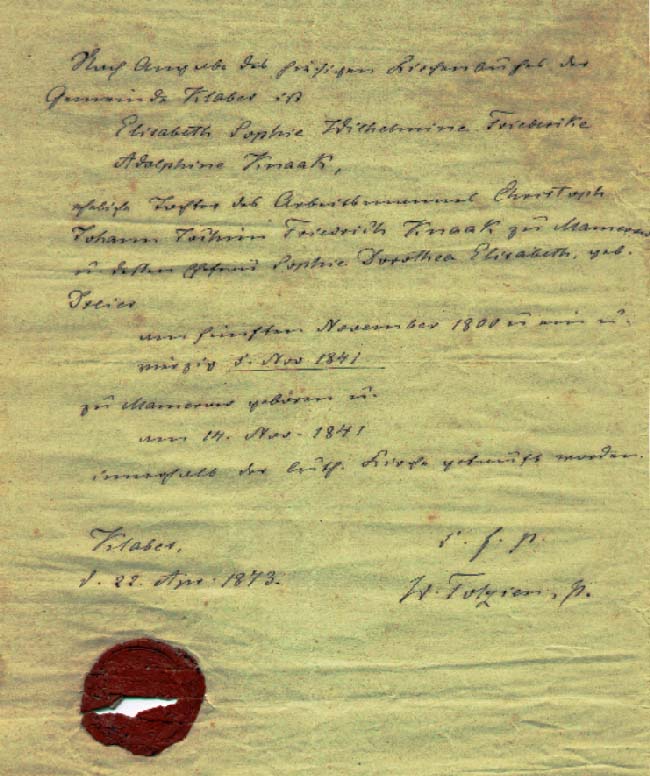 Nach Angabe des hiesigen Kirchenbuches der
Gemeinde Klaber ist
Elisabeth Sophie Wilhelmine Friederike
Adolphine Knaak,
eheliche Tochter des Arbeitsmannes Christoph
Johann Jochim Friedrich Knaak zu Mamerow
u dessen Ehefrau Sophie Dorothea Elisabeth, geb.
am fünften November 1800 u ein u.
vierzig 5. Nov 1841
zu Mamerow geboren u.
am 14. Nov. 1841
innerhalb der luth. Kirche getauft worden.
Klaber,
d. 22. Apr. 1873.